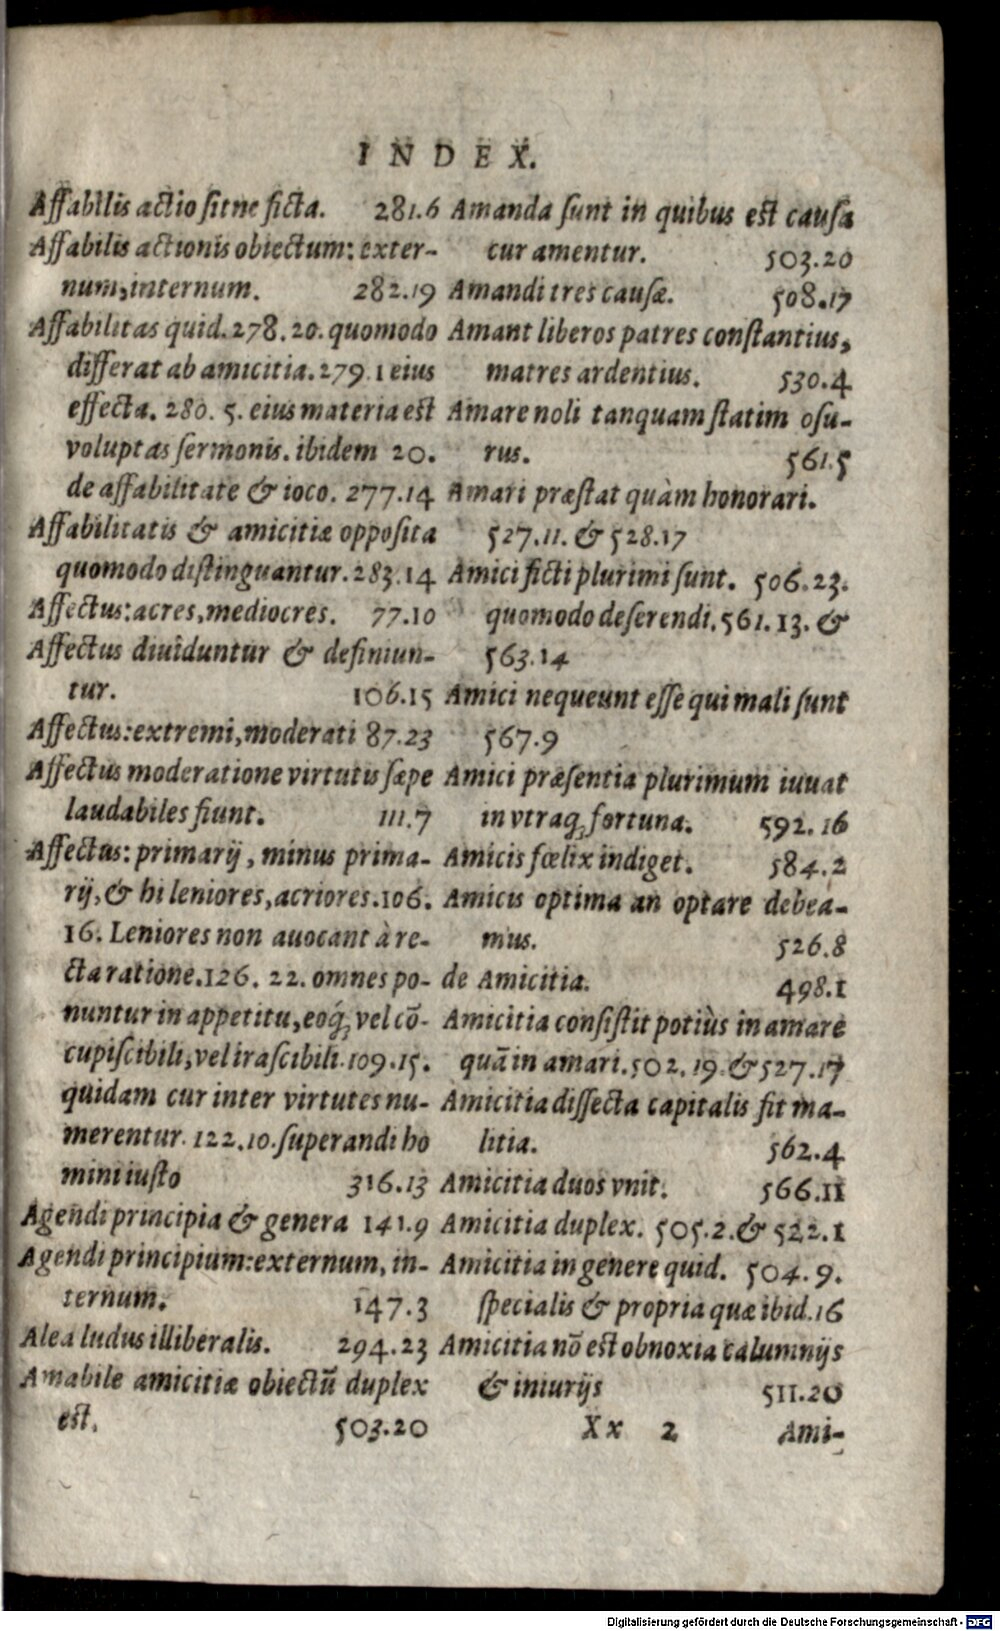 INDEX.
Affabilis actio sit ne ficta. 281.6
Affabilis actionis obiectum: exter-
num, internum. 282.19
Affabilitas quid. 278. 20. quomodo
differat ab amicitia. 279. 1 eius
effecta. 280. 5. eius materia est
voluptas sermonis. ibidem 20.
de affabilitate & ioco. 277.14
Affabilitatis & amicitiæ opposita
quomodo distinguantur. 283.14
Affectus: acres, mediocres. 77.10
Affectus diuiduntur & definiun-
tur. 106.15
Affectus: extremi, moderati 87.23
Affectus moderatione virtutis sæpe
laudabiles fiunt. 111.7
Affectus: primarij, minus prima-
rij, & hi leniores, acriores. 106.
16. Leniores non auocant à re-
cta ratione. 126. 22. omnes po-
nuntur in appetitu, eoq́ꝫ vel cō-
cupiscibili, vel irascibili. 109.15.
quidam cur inter virtutes nu-
merentur. 122.10. superandi ho
mini iusto 316.13
Agendi principia & genera 141.9
Agendi principium: externum, in-
ternum. 147.3
Alea ludus illiberalis. 294.23
Amabile amicitiæ obiectū duplex
est. 503.20
Amanda sunt in quibus est causa
cur amentur. 503.20
Amandi tres causæ. 508.17
Amant liberos patres constantius,
matres ardentius. 530.4
Amare noli tanquam statim osu-
rus. 561.5
Amari præstat quàm honorari.
527.11. & 528.17
Amici ficti plurimi sunt. 506.23.
quomodo deserendi. 561. 13. &
563.14
Amici nequeunt esse qui mali sunt
567.9
Amici præsentia plurimum iuuat
in vtraqꝫ fortuna. 592.16
Amicis fœlix indiget. 584.2
Amicis optima an optare debea-
mus. 526.8
de Amicitia. 498.1
Amicitia consistit potiùs in amare
quā in amari. 502. 19. & 527.17
Amicitia dissecta capitalis fit ma-
litia. 562.4
Amicitia duos vnit. 566.11
Amicitia duplex. 505.2. & 522.1
Amicitia in genere quid. 504.9.
specialis & propria quæ ibid. 16
Amicitia nō est obnoxia calumnijs
& iniurijs 511.20
Xx 2 Ami-
Digitalisierung gefördert durch die Deutsche Forschungsgemeinschaft - DFG